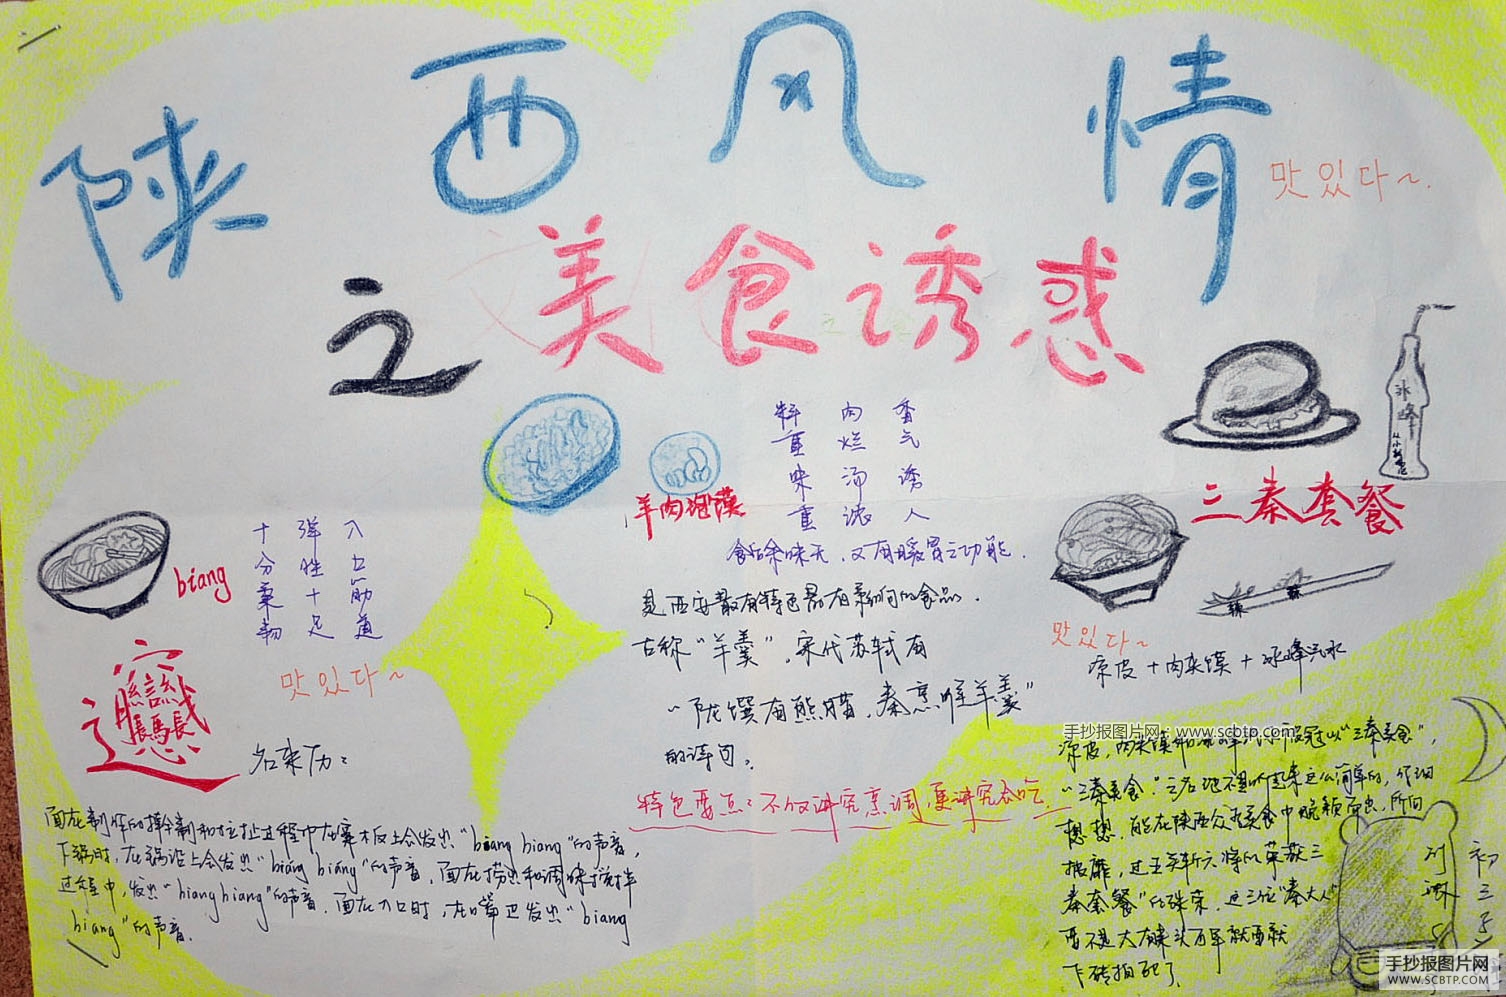 陕西风情
맛있다~.
之美食诱惑
料重味重
肉烂汤浓
香气诱人
食后余味无,又有暖胃之功能.
羊肉泡馍
是西安最有特色最有影响的食品.
古称“羊羹”,宋代苏轼有
“陇馔有熊腊,秦烹唯羊羹”
的诗句。
特色要点:不仅讲究烹调,更讲究会吃
biang
十分柔韧
弹性十足
入口筋道
맛있다~
名来历:
面在制作的摔制和拉扯过程中在案板上会发出“biang biang”的声音,
下锅时,在锅沿上会发出“biang biang”的声音,面在捞出和调味搅拌
过程中,发出“biangbiang”的声音.面在入口时,在嘴里发出“biang
biang”的声音.
冰峰
三秦套餐
辣
辣
맛있다~
凉皮+肉夹馍+冰峰汽水
手抄报图片网:www.scbtp.com
“三秦美食”,
“三秦美食”之名
想想,能在陕西众多美食中脱颖而出,所向
披靡,过五关斩六将的荣获三
秦套餐”的殊荣,这三位“秦大人”
要不是大有来头
下砖拍死了
初三
手抄报图片网
WWW.SCBTP.COM